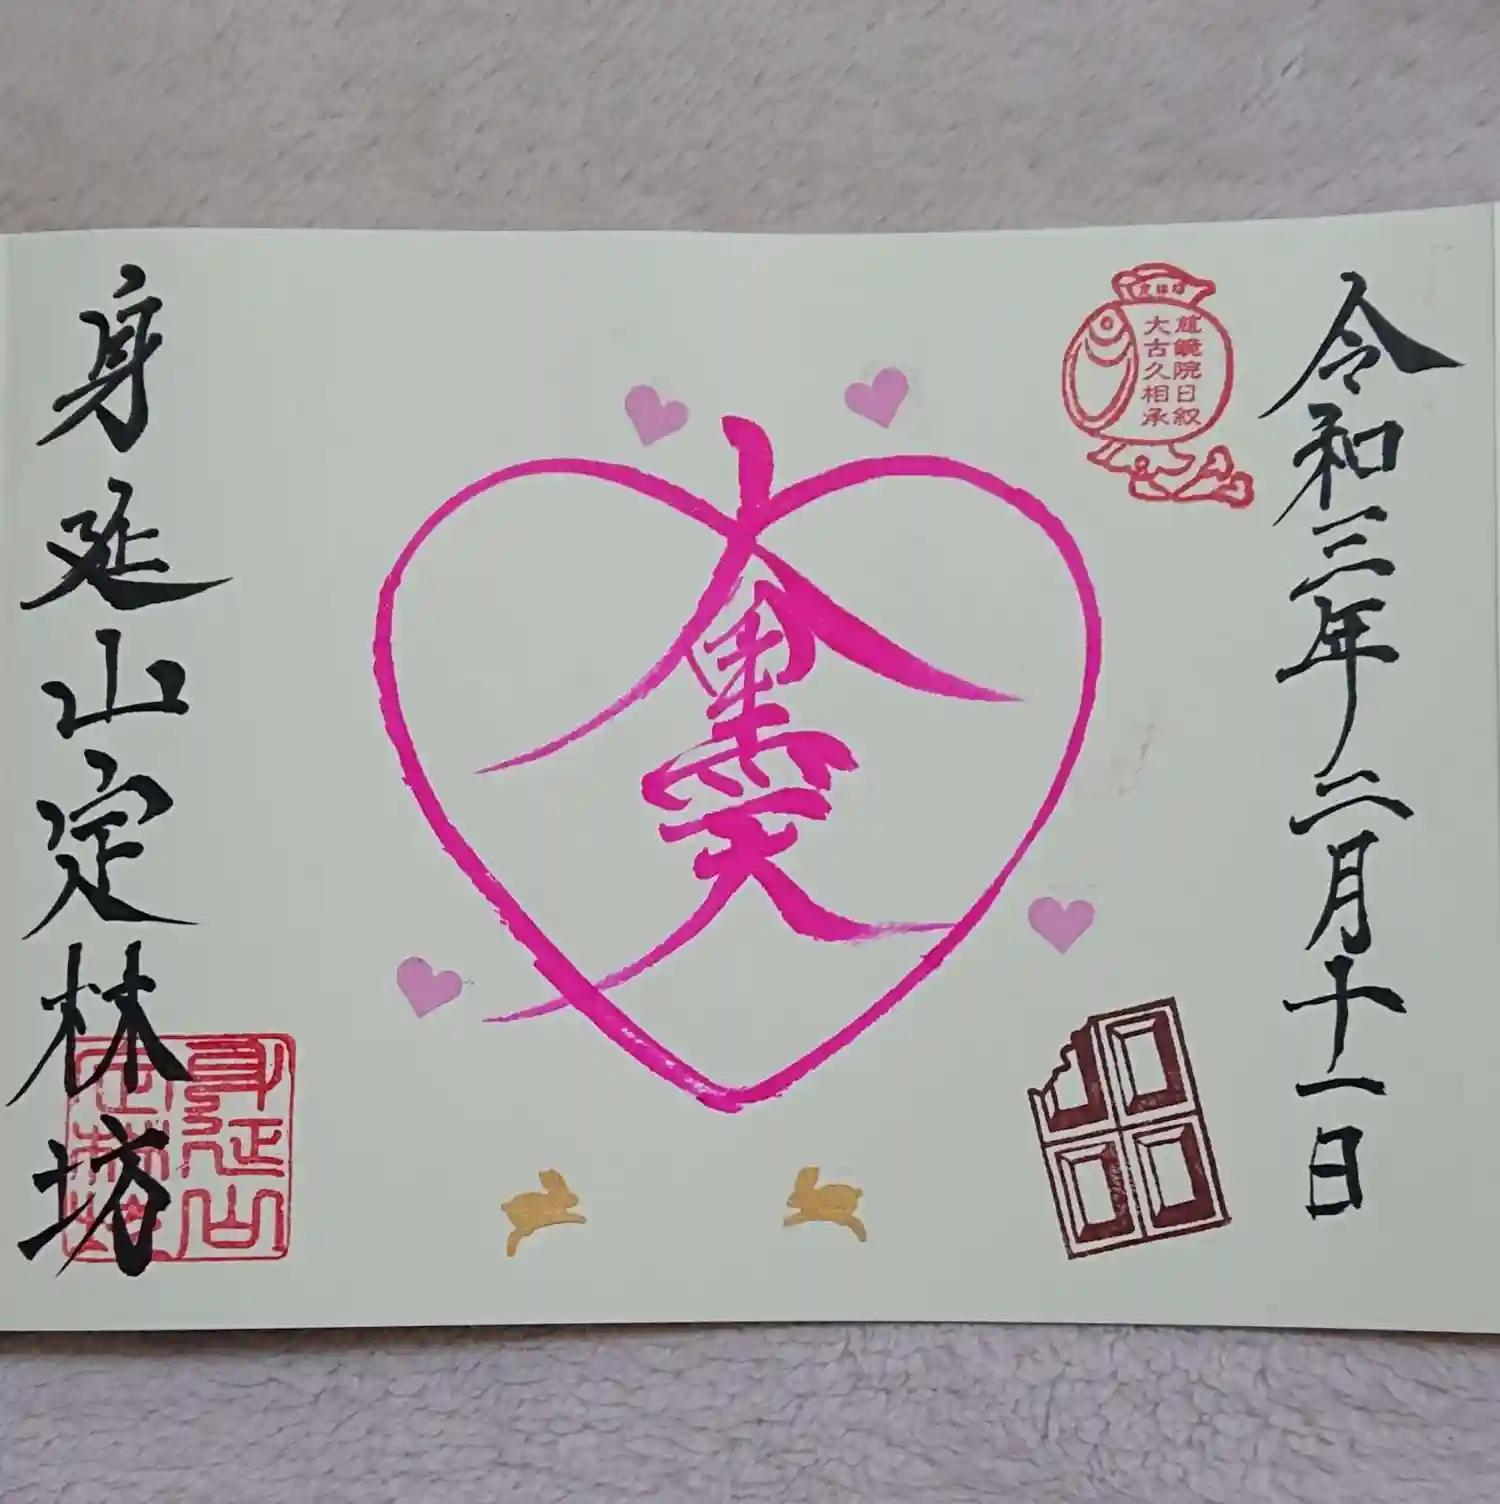 令和三年二月十一日
鏡院日叙
大古久相承
大黒天
身延山定林坊
身延山
定林坊